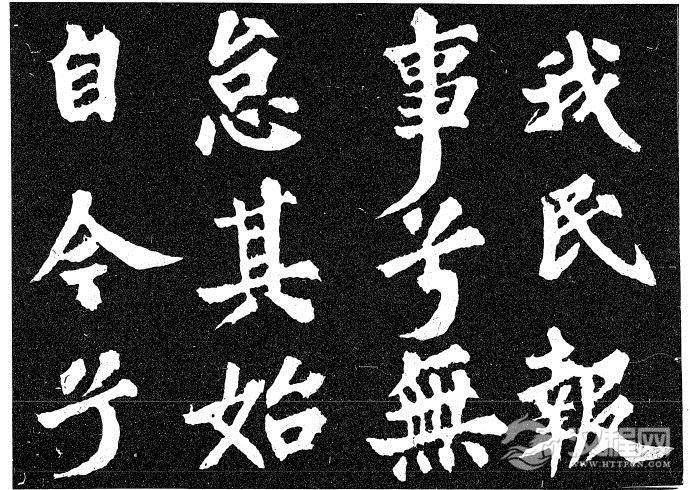 我民報
事兮無
怠其始
自今兮
汉程网
WWW.HTTPCN.COM